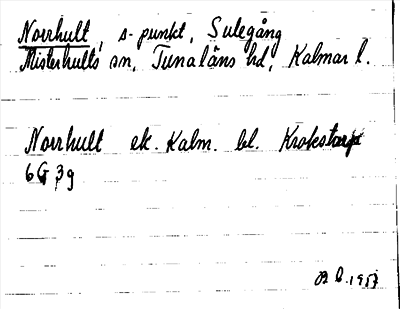 Norrhult, s-punkt, Sulegång
Misterhults sn, Tunaläns hd, Kalmar l.
Norrhult ek. Kalm. bl. Krokstorp
6G 3g
1957